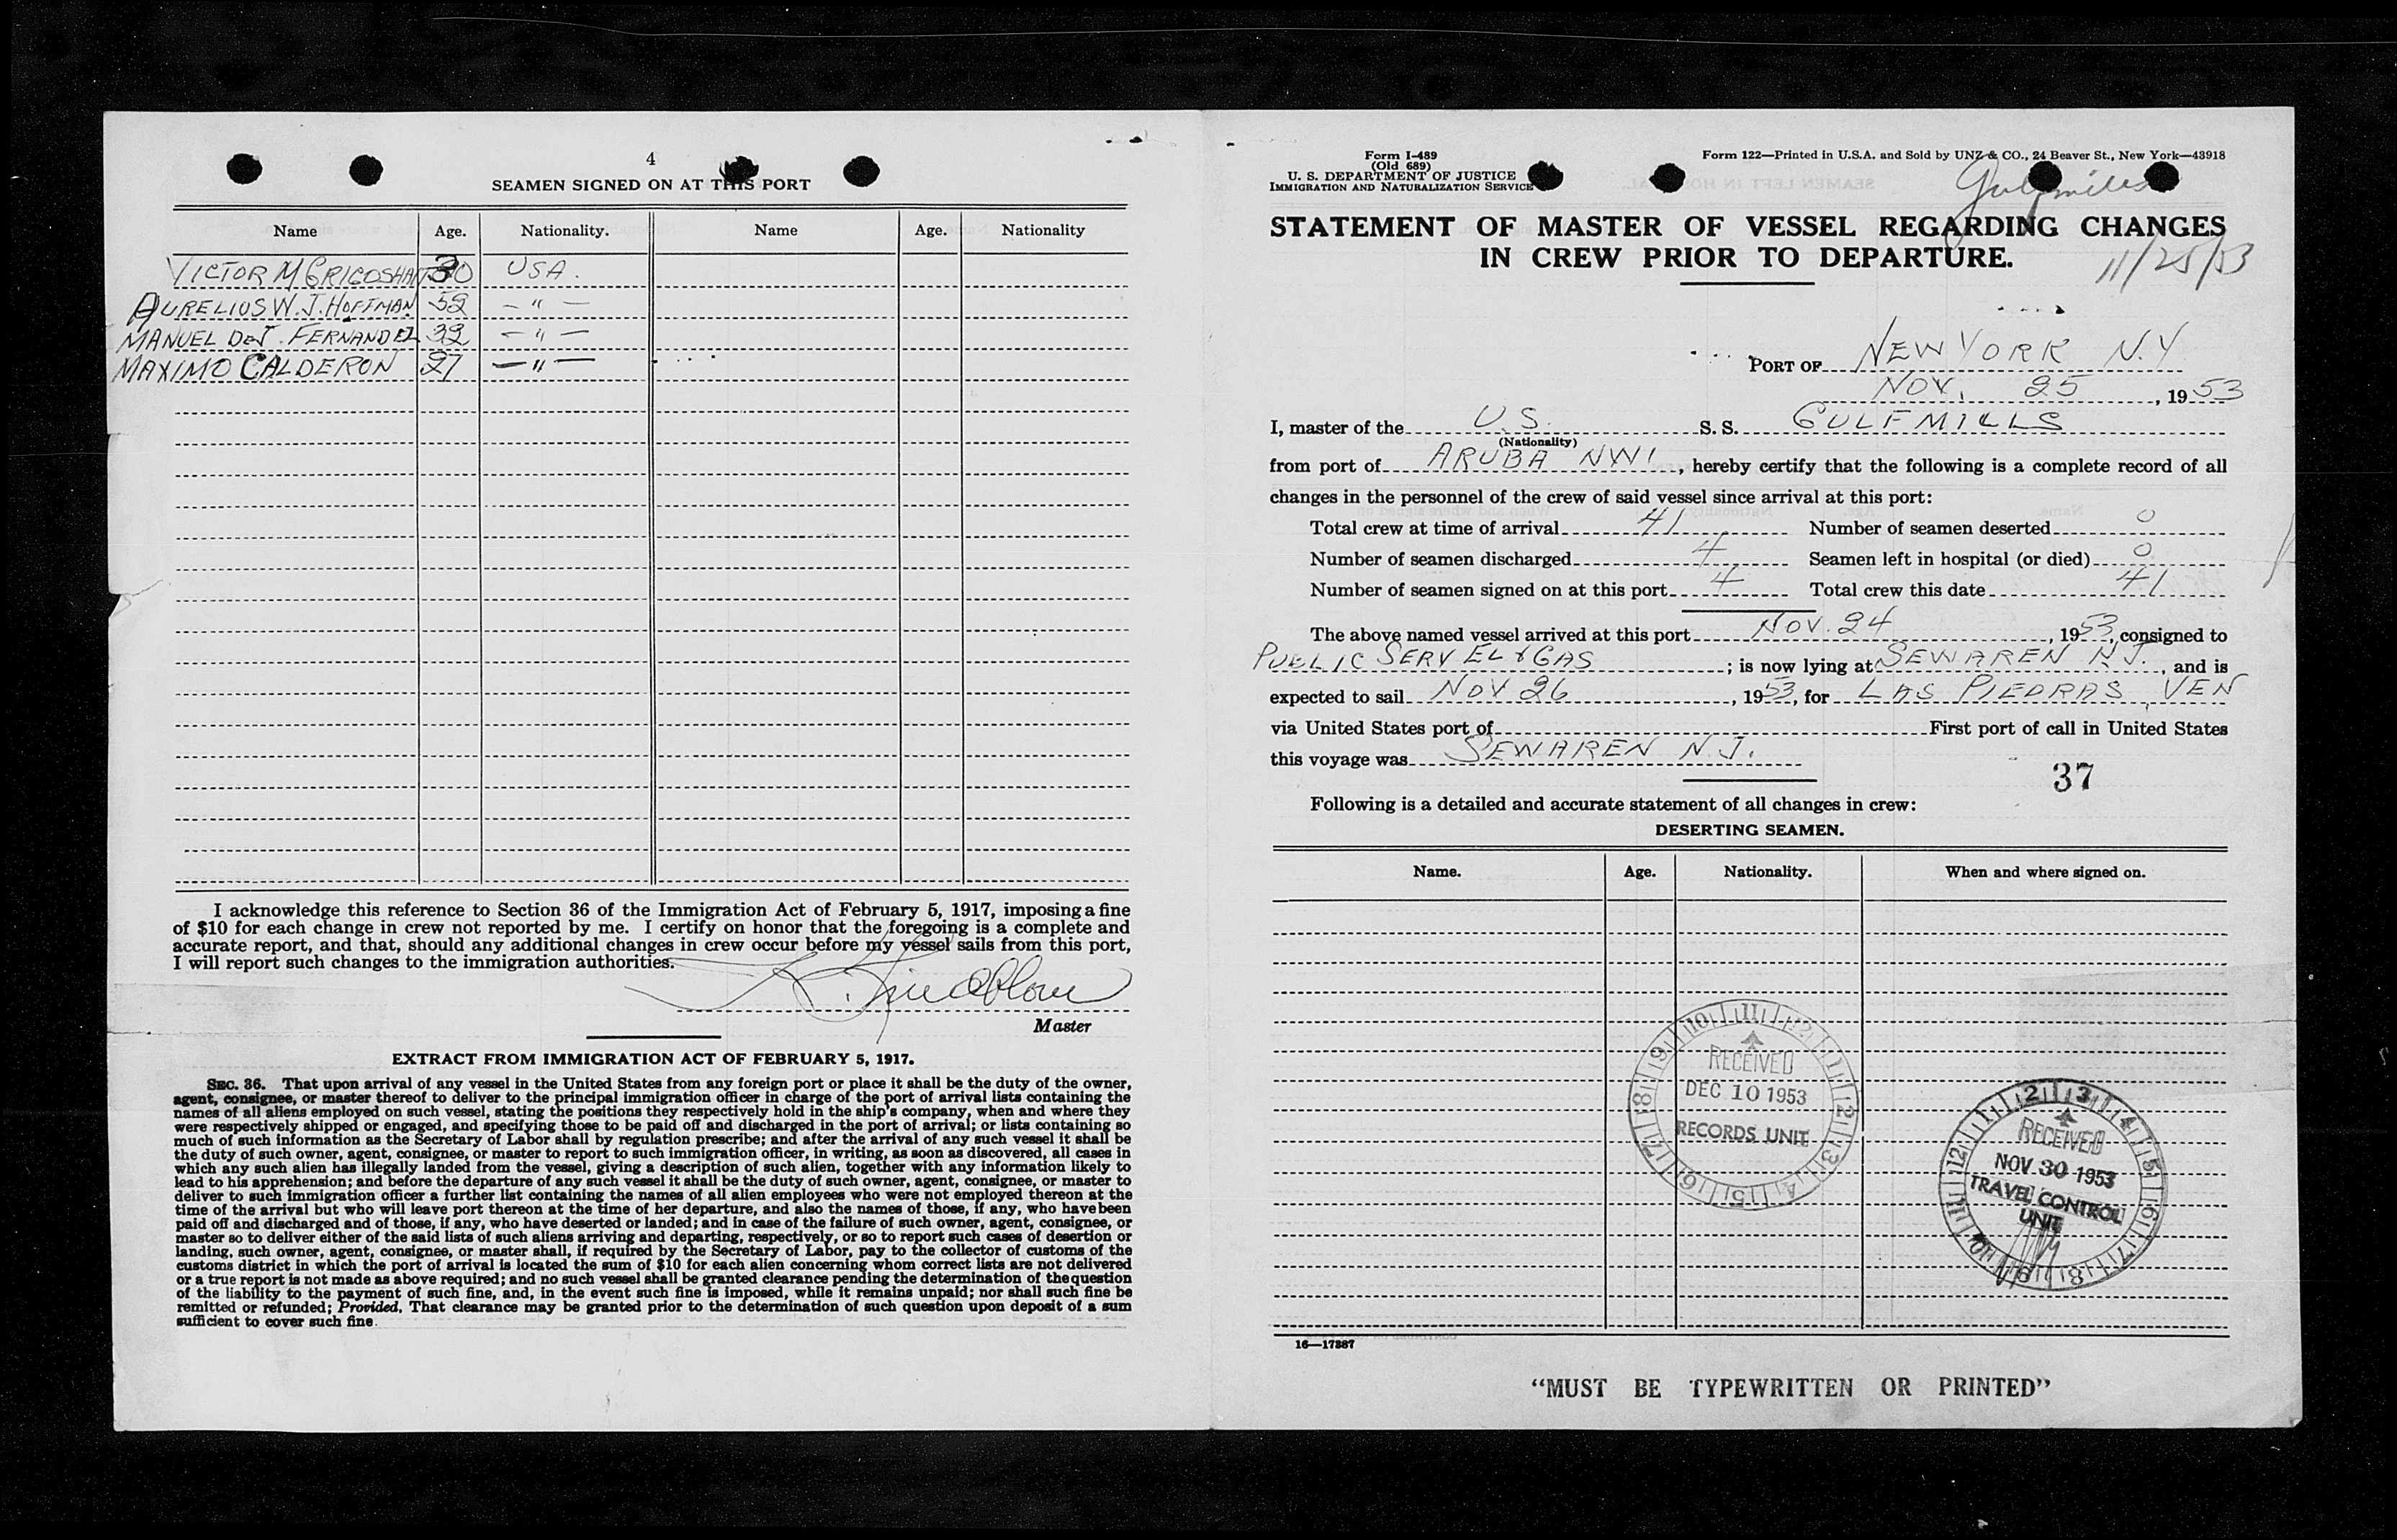 4
SEAMEN SIGNED ON AT THIS PORT
Name Age. Nationality. Name Age. Nationality
VICTOR M 30 USA.
AURELIUS W. J. HOFFMAN 52 — " —
MANUEL DeJ. FERNANDEZ 32 — " —
MAXIMO CALDERON 27 — " —
I acknowledge this reference to Section 36 of the Immigration Act of February 5, 1917, imposing a fine
of $10 for each change in crew not reported by me. I certify on honor that the foregoing is a complete and
accurate report, and that, should any additional changes in crew occur before my vessel sails from this port,
I will report such changes to the immigration authorities.
Master
EXTRACT FROM IMMIGRATION ACT OF FEBRUARY 5, 1917.
SEC. 36. That upon arrival of any vessel in the United States from any foreign port or place it shall be the duty of the owner,
agent, consignee, or master thereof to deliver to the principal immigration officer in charge of the port of arrival lists containing the
names of all aliens employed on such vessel, stating the positions they respectively hold in the ship's company, when and where they
were respectively shipped or engaged, and specifying those to be paid off and discharged in the port of arrival; or lists containing so
much of such information as the Secretary of Labor shall by regulation prescribe; and after the arrival of any such vessel it shall be
the duty of such owner, agent, consignee, or master to report to such immigration officer, in writing, as soon as discovered, all cases in
which any such alien has illegally landed from the vessel, giving a description of such alien, together with any information likely to
lead to his apprehension; and before the departure of any such vessel it shall be the duty of such owner, agent, consignee, or master to
deliver to such immigration officer a further list containing the names of all alien employees who were not employed thereon at the
time of the arrival but who will leave port thereon at the time of her departure, and also the names of those, if any, who have been
paid off and discharged and of those, if any, who have deserted or landed; and in case of the failure of such owner, agent, consignee, or
master so to deliver either of the said lists of such aliens arriving and departing, respectively, or so to report such cases of desertion or
landing, such owner, agent, consignee, or master shall, if required by the Secretary of Labor, pay to the collector of customs of the
customs district in which the port of arrival is located the sum of $10 for each alien concerning whom correct lists are not delivered
or a true report is not made as above required; and no such vessel shall be granted clearance pending the determination of the question
of the liability to the payment of such fine, and, in the event such fine is imposed, while it remains unpaid; nor shall such fine be
remitted or refunded; Provided, That clearance may be granted prior to the determination of such question upon deposit of a sum
sufficient to cover such fine.
Form I-489
(Old 689)
U. S. DEPARTMENT OF JUSTICE
IMMIGRATION AND NATURALIZATION SERVICE
Form 122—Printed in U.S.A. and Sold by UNZ & CO., 24 Beaver St., New York—43918
Gulfmills
STATEMENT OF MASTER OF VESSEL REGARDING CHANGES
IN CREW PRIOR TO DEPARTURE.
11/25/53
PORT OF NEW YORK N.Y
NOV. 25, 1953
I, master of the U.S. S. S. GULFMILLS
(Nationality)
from port of ARUBA NWI, hereby certify that the following is a complete record of all
changes in the personnel of the crew of said vessel since arrival at this port:
Total crew at time of arrival 41 Number of seamen deserted 0
Number of seamen discharged 4 Seamen left in hospital (or died) 0
Number of seamen signed on at this port 4 Total crew this date 41
The above named vessel arrived at this port NOV. 24, 1953, consigned to
PUBLIC SERV EL & GAS; is now lying at SEWAREN N.J., and is
expected to sail NOV 26, 1953, for LAS PIEDRAS, VEN
via United States port of First port of call in United States
this voyage was SEWAREN N.J.
37
Following is a detailed and accurate statement of all changes in crew:
DESERTING SEAMEN.
Name. Age. Nationality. When and where signed on.
RECEIVED
DEC 10 1953
RECORDS UNIT
RECEIVED
NOV 30 1953
TRAVEL CONTROL
UNIT
16—17887
"MUST BE TYPEWRITTEN OR PRINTED"